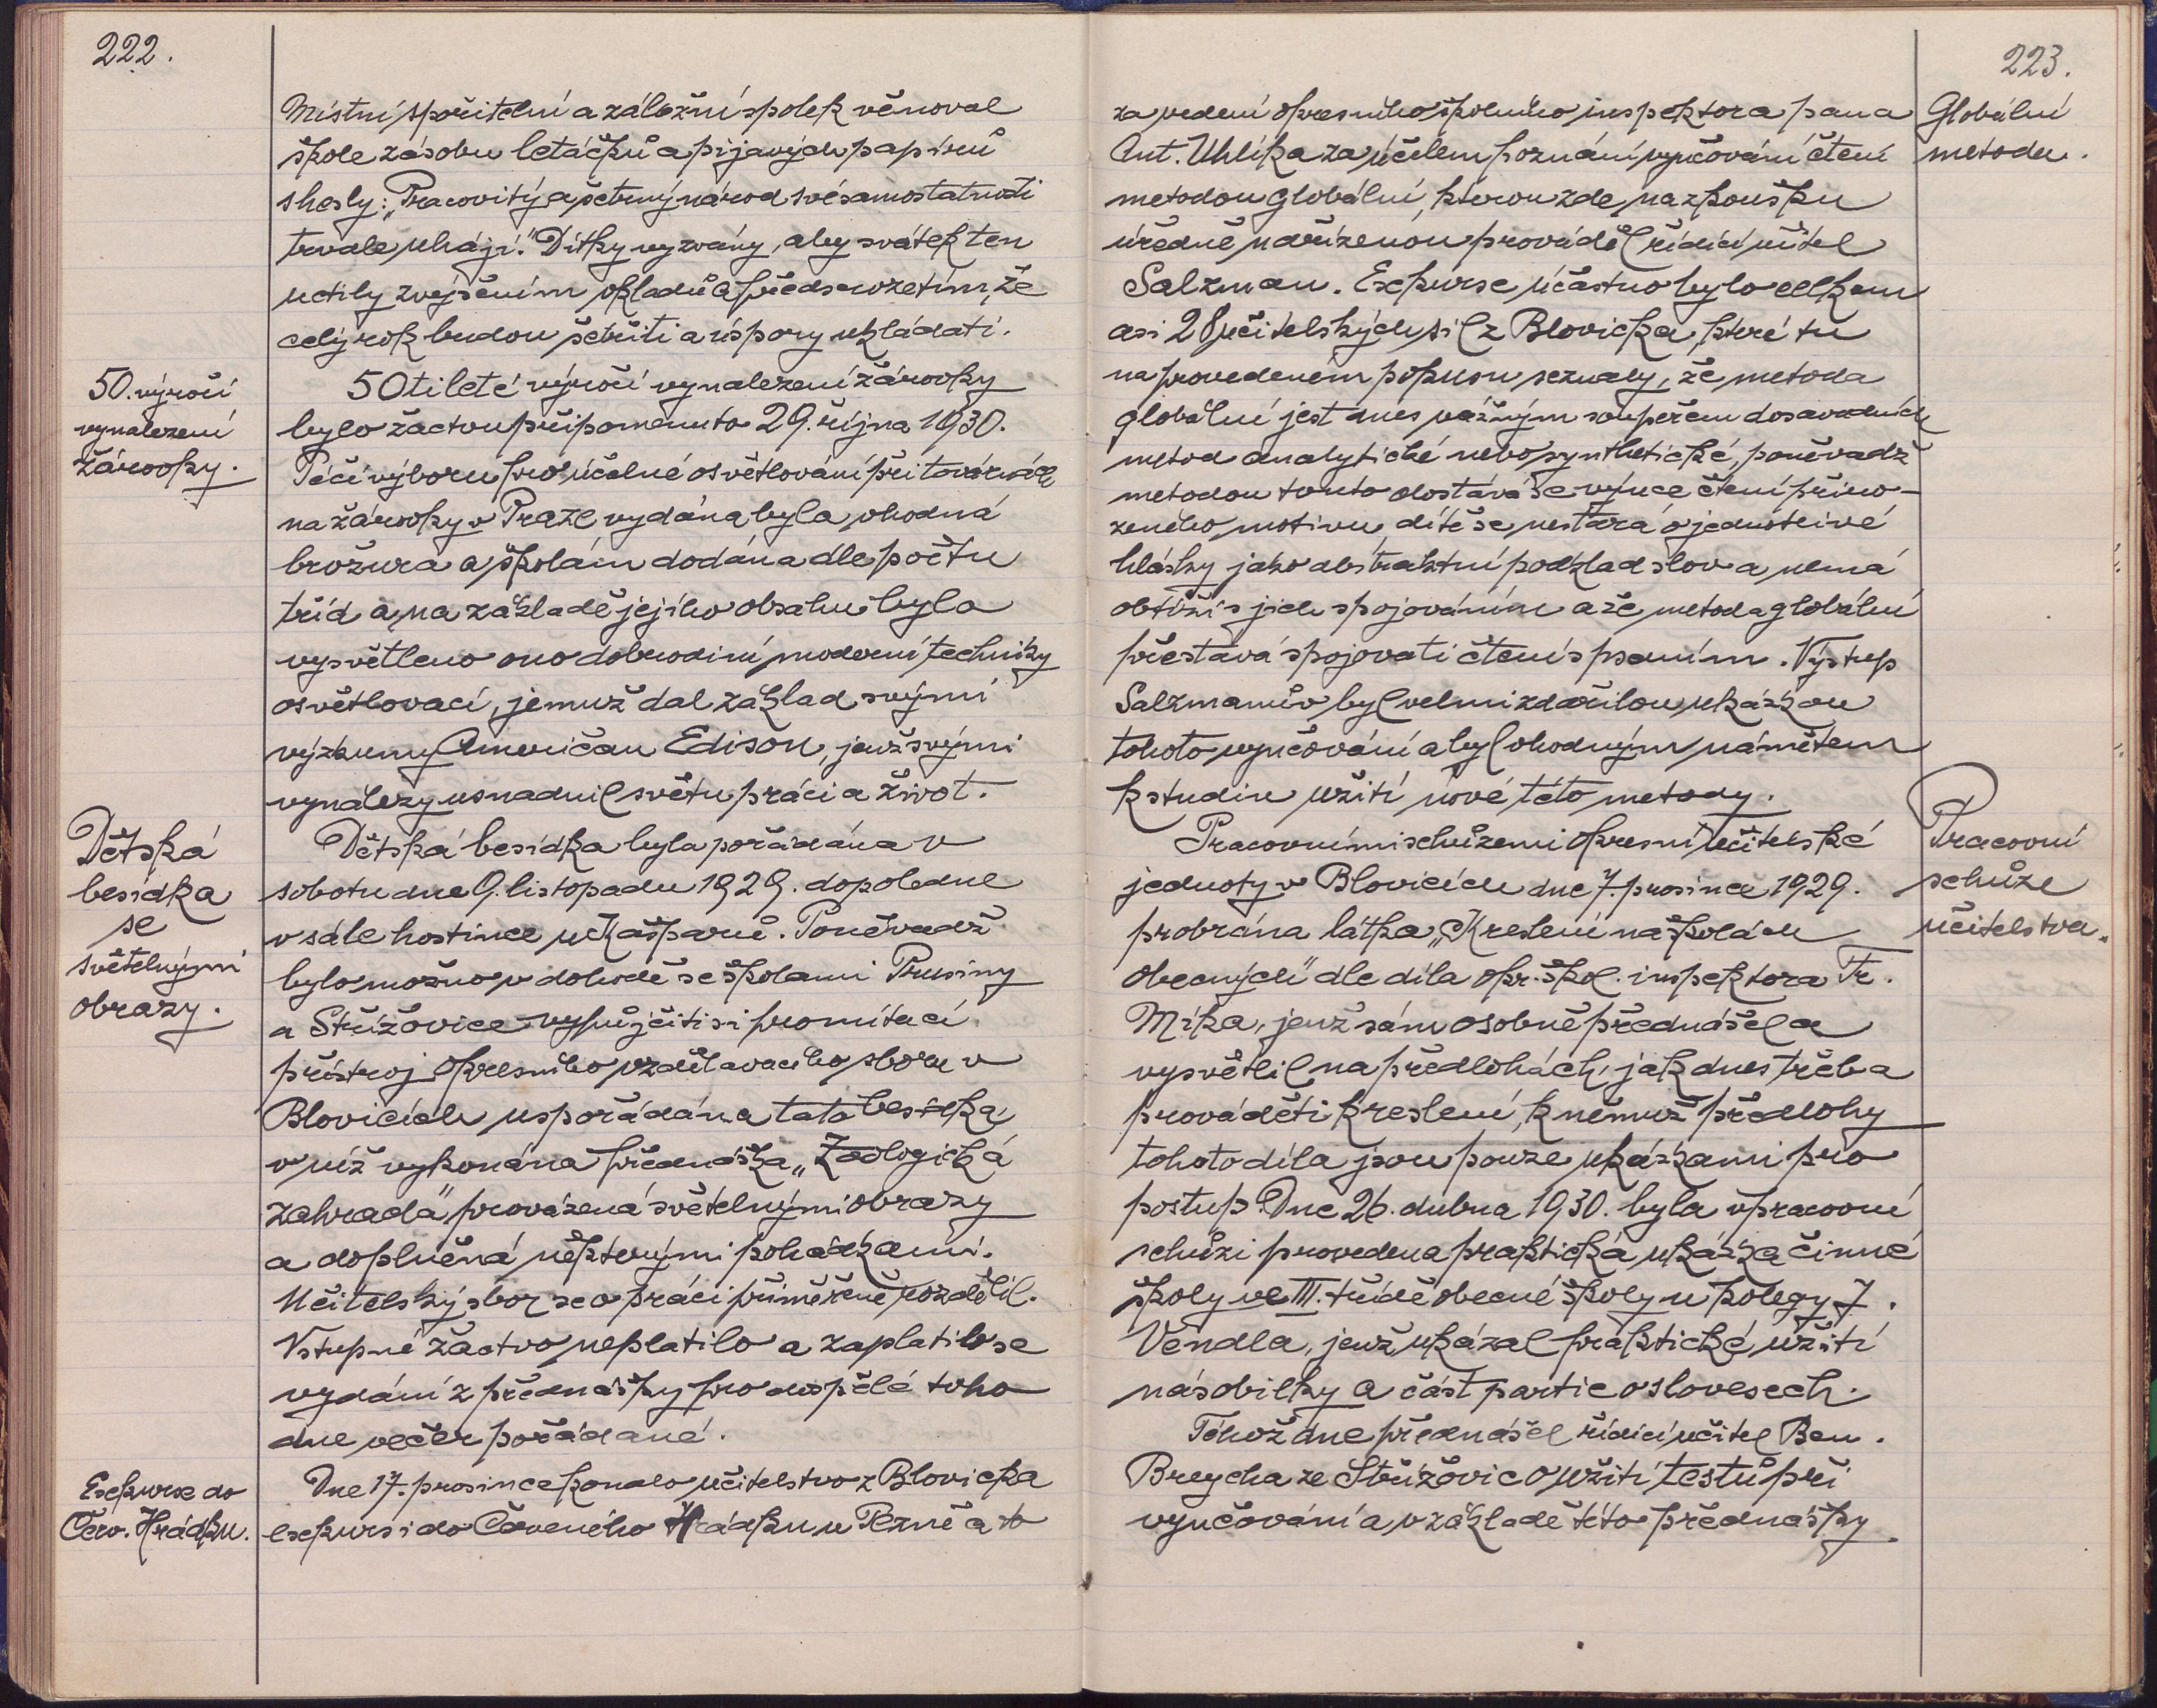 222.
Místní spořitelní a záložní spolek věnoval
škole zásobu letáčků a pijavých papírů
s hesly: „Pracovitý a šetrný národ své samostatnosti
trvale uhájí." Dítky vyzvány, aby svátek ten
uctily zvýšením vkladů a předsevzetím, že
celý rok budou šetřiti a úspory ukládati.
50. výročí
vynalezení
žárovky.
50tileté výročí vynalezení žárovky
bylo žactvu připomenuto 29. října 1930.
Péčí výboru pro účelné osvětlování při továrnách
na žárovky v Praze vydána byla vhodná
brožura a školám dodána dle počtu
tříd a na základě jejího obsahu bylo
vysvětleno ono dobrodiní moderní techniky
osvětlovací, jemuž dal základ svými
výzkumy Američan Edison, jenž svými
vynálezy usnadnil světu práci a život.
Dětská
besídka
se
světelnými
obrazy.
Dětská besídka byla pořádána v
sobotu dne 9. listopadu 1929. dopoledne
v sále hostince u Kašparů. Poněvadž
bylo možno v dohodě se školami Prusiny
a Střížovice vypůjčiti si promítací
přístroj Okresního vzdělavacího sboru v
Blovicích uspořádána tato besídka,
v níž vykonána přednáška „Zoologická
zahrada" provázená světelnými obrazy
a doplněná některými pohádkami.
Učitelský sbor se o práci přiměřeně rozdělil.
Vstupné žactvo neplatilo a zaplatilo se
vydání z přednášky pro dospělé toho
dne večer pořádané.
Exkurse do
Červ. Hrádku.
Dne 17. prosince konalo učitelstvo z Blovicka
exkursi do Červeného Hrádku u Plzně a to
223.
Globální
metoda.
za vedení okresního školního inspektora pana
Ant. Uhlíka za účelem poznání vyučování čtení
metodou globální, kterou zde na zkoušku
úředně nařízenou prováděl řídící učitel
Salzman. Exkurse účastno bylo celkem
asi 28 učitelských sil z Blovicka, které tu
na provedeném pokusu seznaly, že metoda
globální jest dnes vážným soupeřem dosavadních
metod analytické nebo synthetické, poněvadž
metodou touto dostává se výuce čtení přiro-
zeného motivu, dítě se nestará o jednotlivé
hlásky jako abstraktní podklad slov a nemá
obtíží s jich spojováním a že metoda globální
přestává spojovati čtení s psaním. Výstup
Salzmanův byl velmi zdařilou ukázkou
tohoto vyučování a byl vhodným námětem
k studiu užití nové této metody.
Pracovní
schůze
učitelstva.
Pracovními schůzemi Okresní učitelské
jednoty v Blovicích dne 7. prosince 1929.
probrána látka „Kreslení na školách
obecných" dle díla okr. škol. inspektora Fr.
Míka, jenž sám osobně přednášel a
vysvětlil na předlohách, jak dnes třeba
prováděti kreslení, k němuž předlohy
tohoto díla jsou pouze ukázkami pro
postup. Dne 26. dubna 1930. byla v pracovní
schůzi provedena praktická ukázka činné
školy ve III. třídě obecné školy u kolegy J.
Vendla, jenž ukázal praktické užití
násobilky a část partie o slovesech.
Téhož dne přednášel řídící učitel Ben.
Brejcha ze Střížovic o užití testů při
vyučování a v základě této přednášky